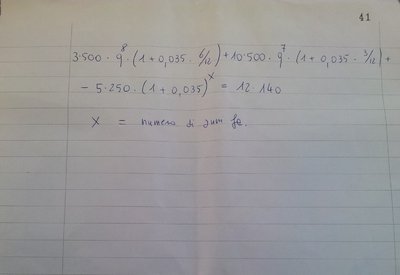 41
3·500 · q^8 · (1 + 0,035 · 6/12) + 10·500 · q^7 · (1 + 0,035 · 3/12) +
- 5·250 · (1 + 0,035)^x = 12·140
x = numero di anni